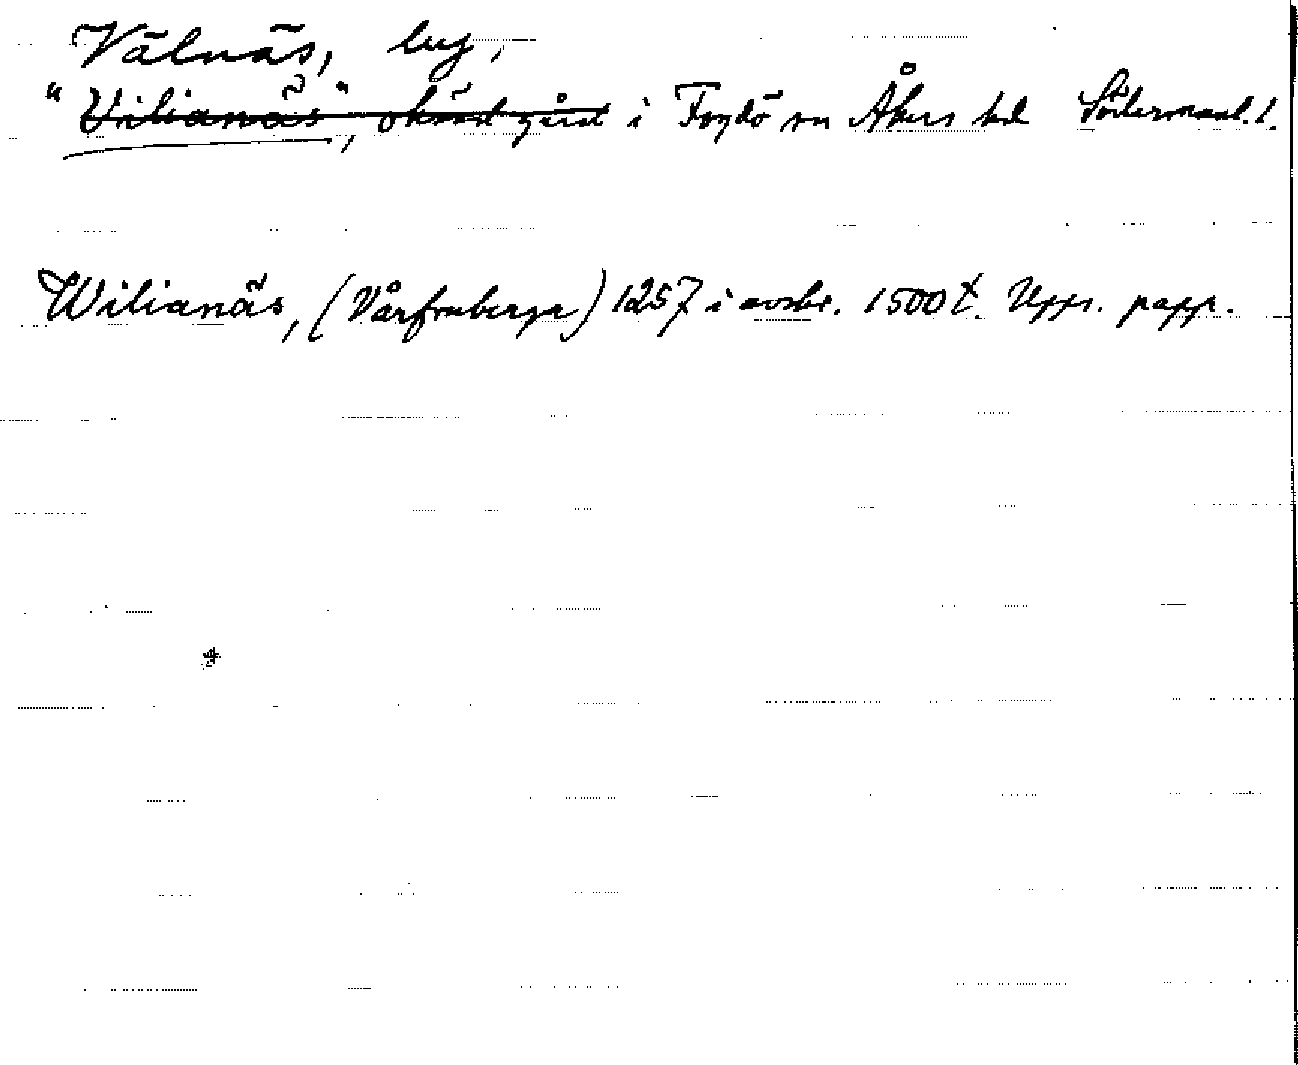 Välnäs, by,
"Vilianäs", okänd gård i Fogdö sn Åkers hd Södermanl. l.
Wilianäs, (Vårfruberga) 1257 i avskr. 1500 t. Upps. papp.